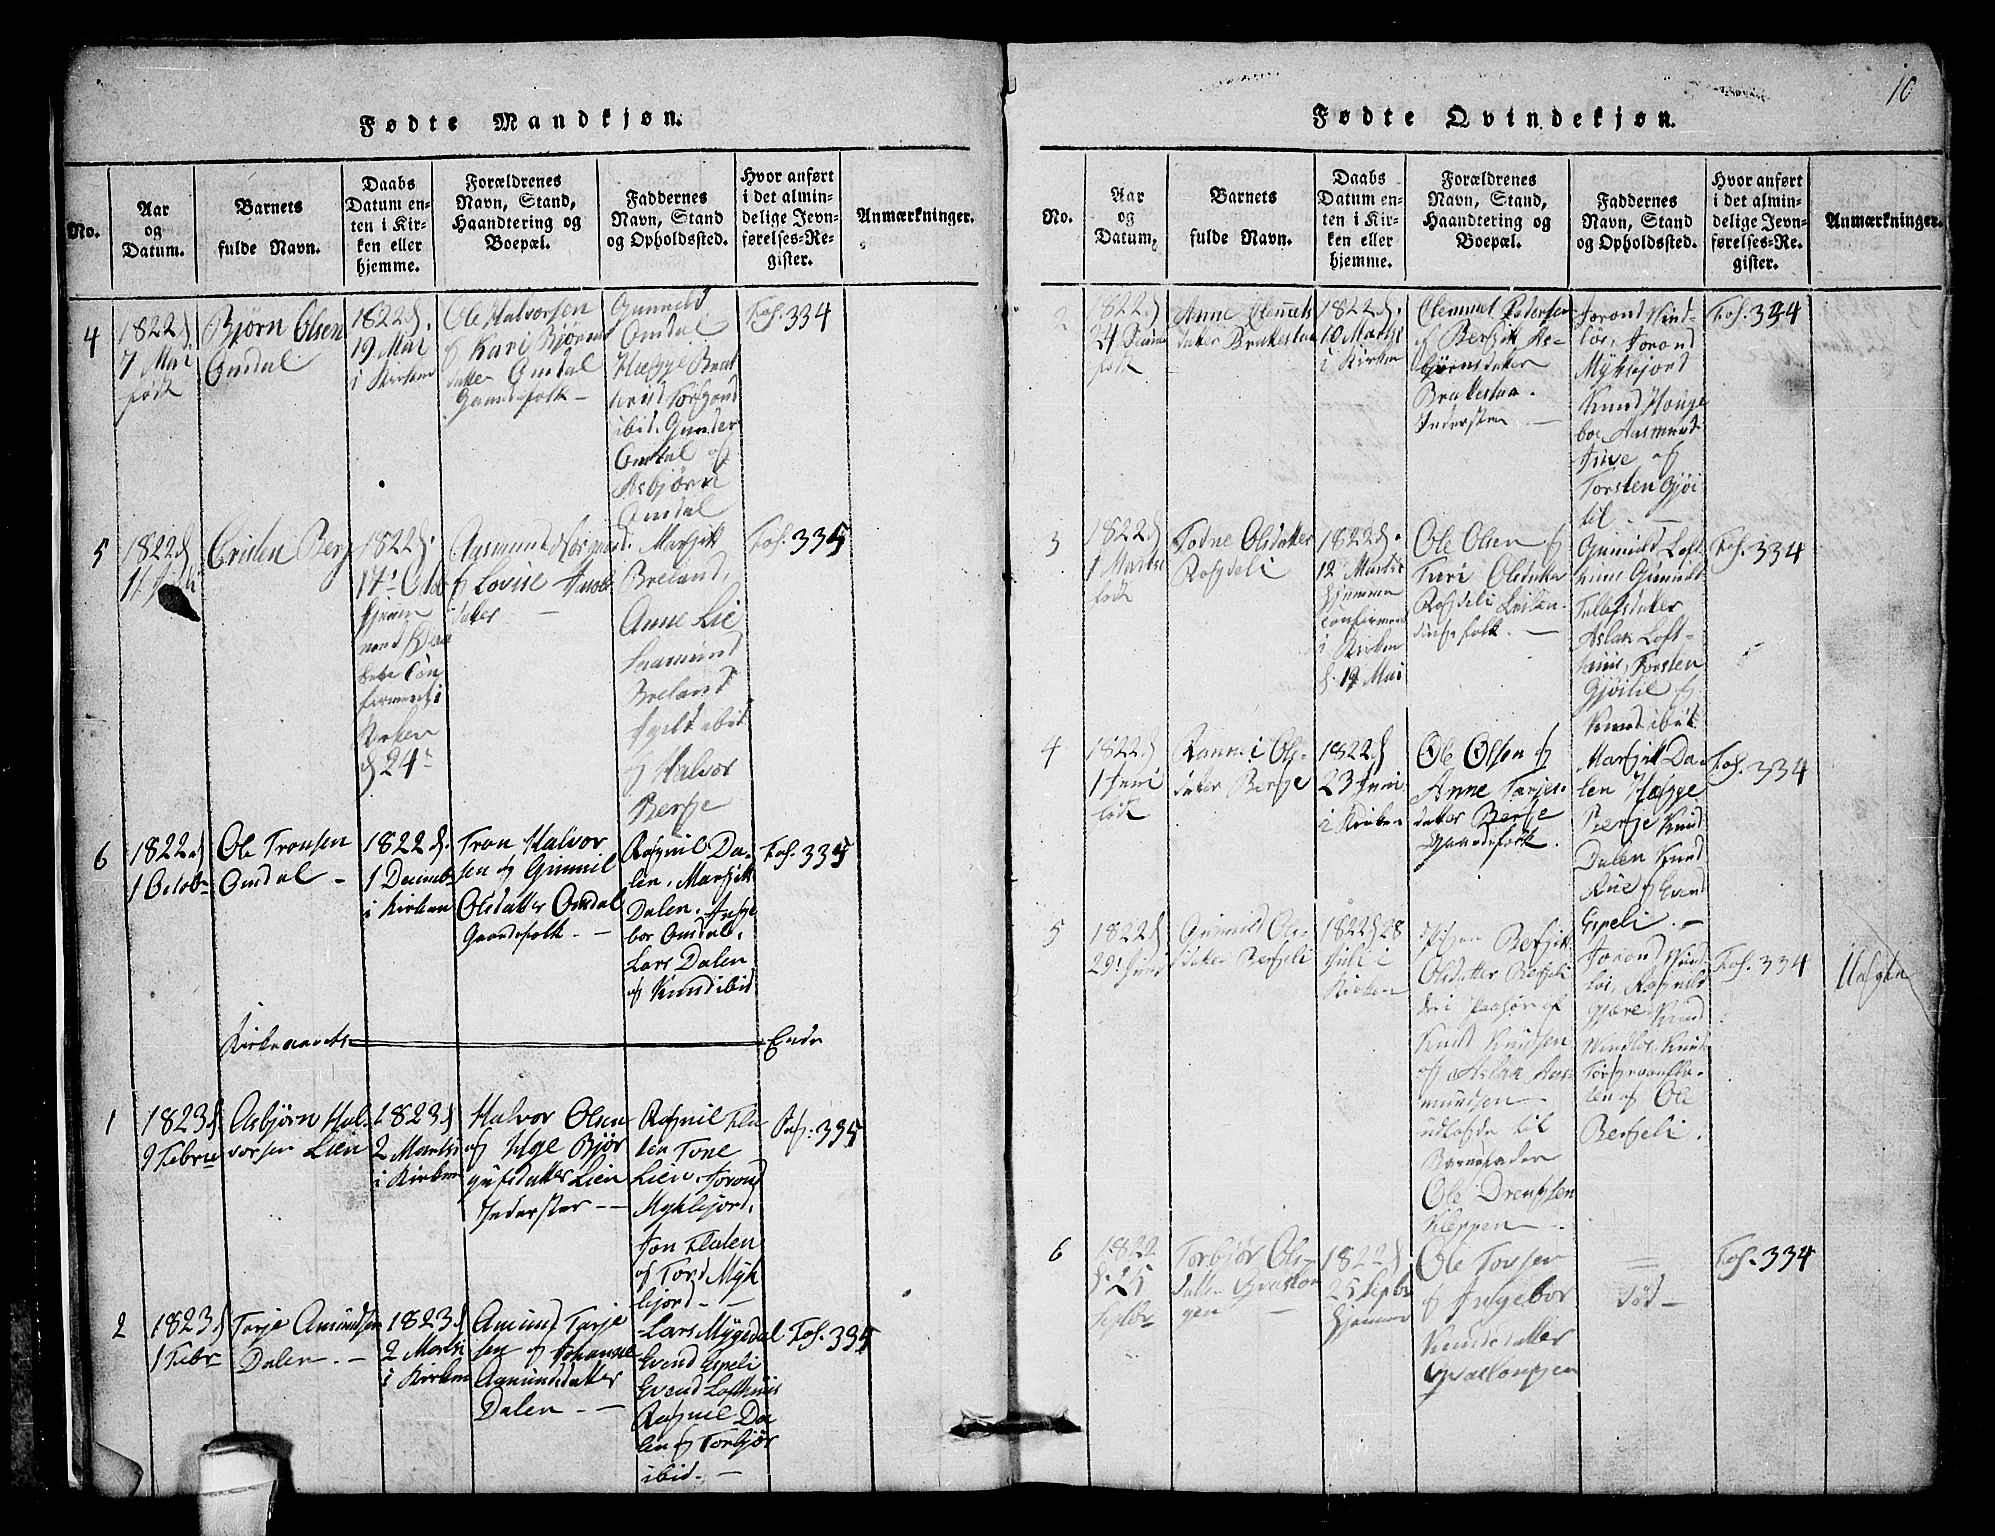 10
Fødte Mandkjøn.
No.
Aar
og
Datum.
Barnets
fulde Navn.
Daabs
Datum en-
ten i Kir-
ken eller
hjemme.
Forældrenes
Navn, Stand,
Haandtering og
Boepæl.
Faddernes
Navn, Stand
og Opholdssted.
Hvor anført
i det almin-
delige Jevn-
førelses-Re-
gister.
Anmærkninger.
4
1822 d
7 Mai
født
Bjørn Olsen
Omdal
1822 d.
19 Mai
i Kirken
Ole Halvorsen
og Kari Bjørns
datter Omdal
Gaardefolk -
Gunneld
Omdal
Hægge
ibid. Gunder
Omdal og
Asbjørn
Omdal
Fol. 334
5
1822 d
Cristen Berg
1822 d.
17
Con
firmert i
Kirken
d 24
Aasmund
og Lovise Jacobs
datter -
Margit
Breland,
Anne Lie
Aamund
Breland
ibid
og Halvor
Berge
Fol. 335
6
1822 d
1 Octobr
Ole Tronsen
Omdal -
1822 d.
1 Decemb
i Kirken
Tron Halvor
sen og Gunnil
Olsdatter Omdal
Gaardefolk. -
Ragnil Da-
len, Margit
Dalen, Inge
bor Omdal,
Lars Dalen
og Knud ibid
Fol. 335
Kirkeaarets
Ende
1
1823 d.
9 Febru
Asbjørn Hal-
vorsen Lien
1823 d
2 Martsi
i Kirken
Halvor Olsen
og Inge Bjør
gufsdatter Lien
Inderster -
Ragnil Fla
len Tone
Lien, Jorond
Myklejord,
Jon Flalen
og Tord Myk
lejord. -
Fol. 335
2
1823 d
1 Febr
Tarje Amundsen
Dalen. -
1823 d
2 Martsi
i Kirken
Amund Tarje
sen og Johanne
Agmundsdatter
Dalen. -
Lars Mygedal
Evend Espeli
Evend Lofthuus
Ragnil Da
len og Torbjør
ibid. -
Fol. 335
Fødte Qvindekjøn.
No.
Aar
og
Datum.
Barnets
fulde Navn.
Daabs
Datum en-
ten i Kir-
ken eller
hjemme.
Forældrenes
Navn, Stand,
Haandtering og
Boepæl.
Faddernes
Navn, Stand
og Opholdssted.
Hvor anført
i det almin-
delige Jevn-
førelses-Re-
gister.
Anmærkninger.
2
1822 d
24
født
Anne Clemets
datter Brakestaa
1822 d.
10 Martsi
i Kirken
Clemmet Pedersen
og Bergit As-
bjørnsdatter
Brakestaa.
Indersten -
Jorond Vind-
løs, Jorond
Myklejord
Knud Houge
boe Aasmund
Juve og
Torsten Gjøi
til -
Fol. 334
3
1822 d
1 Martsi
født
Todne Olsdatter
Rogdeli
1822 d.
12 Martsi
Hjemme
Confirmert
i Kirken
d. 19 Mai
Ole Olsen og
Turi Olsdatter
Rogdeli Leilen-
dingefolk. -
Gunnild Loft
huus Gunnild
Tallefsdatter
Aslak Loft-
huus, Torsten
Gjøitil og
Knud ibid.
Fol. 334
4
1822 d
1 Juni
født
Ranni Ols-
datter Berge
1822 d
23 Juni
i Kirken
Ole Olsen og
Anne Tarjes-
datter Berge
Gaardefolk.
Margit Da-
len Hægge
Berge Knud
Dalen Knud
Rue og Evend
Espeli. -
Fol. 334
5
1822 d
29 Juni
Gunnild Ols-
datter Bergeli
1822 d 28
Juli i
Kirken
Pigen Bergit
Olsdatter Bergeli
Knud Knudsen
og Aslak Aas-
mundsen
udlagde til
Barnefader
Ole Drengsen
Kleppen -
Jorond Vind-
løs, Ragnild
Gjære, Knud
Vindløs, Knud
len og Ole
Bergeli.
Fol. 334
Uægte
6
1822
d. 25
Septbr
Torbjør Ols-
datter
gen -
1822 d
25 Septbr
Hjemme
Ole Torsen
og Ingebor
Knudsdatter
-
Død -
Fol. 334